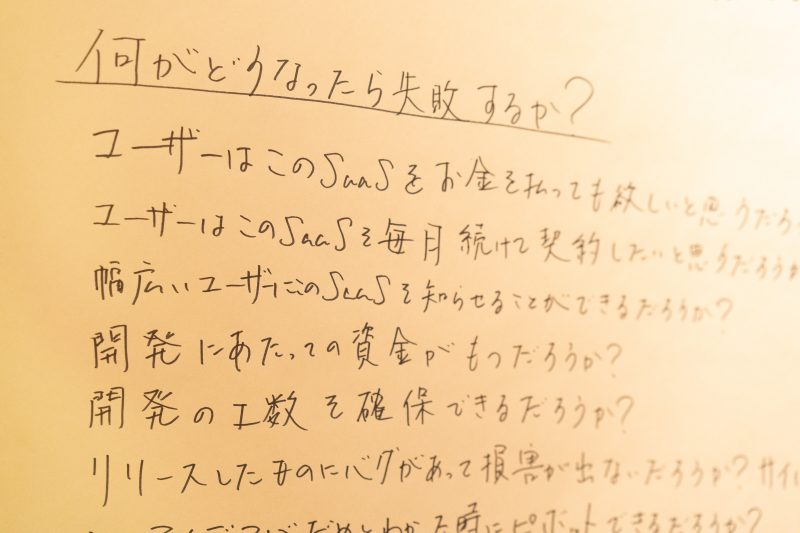 何がどうなったら失敗するか?
ユーザーはこのSaaSをお金を払っても欲しいと思うだろう
ユーザーはこのSaaSを毎月続けて契約したいと思うだろうか
幅広いユーザーにこのSaaSを知らせることができるだろうか?
開発にあたっての資金がもつだろうか?
開発の工数を確保できるだろうか?
リリースしたものにバグがあって損害が出ないだろうか? サイ
だめとわかった時にピボットできるだろうか?